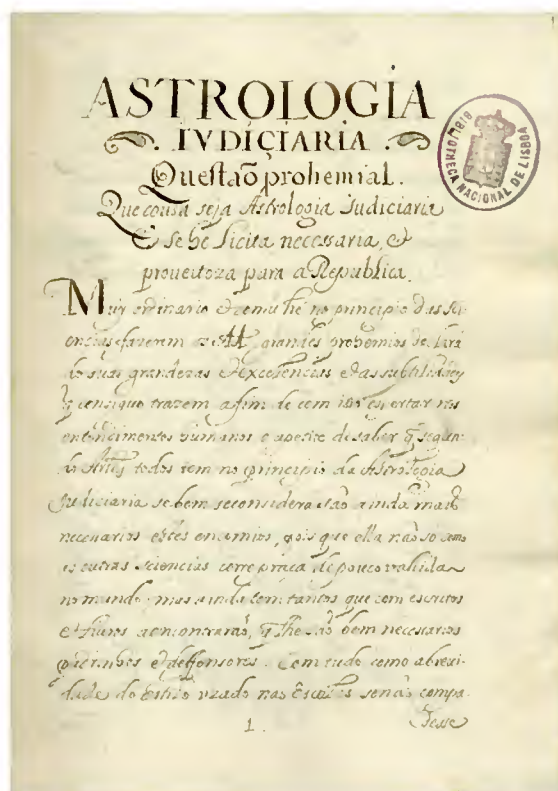 ASTROLOGIA
IVDIÇIARIA.
Questaõ prohemial.
Que cousa seja Astrologia Judiciaria
E se he licita necessaria, e
proueitoza para a Republica.
Muy ordinario e comu he no principio das sci-
encias fazerem os grandes prohemios de
do suas grandezas e excelencias e das subtilidades
q consiguo trazem afim de com isto espertar nos
entendimentos humanos o apetite de saber q segun-
do Artes todos tem no principio da Astrologia
Judiciaria se bem se considera estaõ ainda mais
necessarios estes encomios, pois que ella naõ só como
as outras sciencias corre praça de pouco valida
no mundo mas ainda tem tantos que com escritos
e liuros a encontraraõ, q lhe saõ bem necessarios
e deffensores. Com tudo como a breui-
dade do estilo uzado nas Escolas senaõ compa-
1.
desse
BIBLIOTHECA NACIONAL DE LISBOA
1